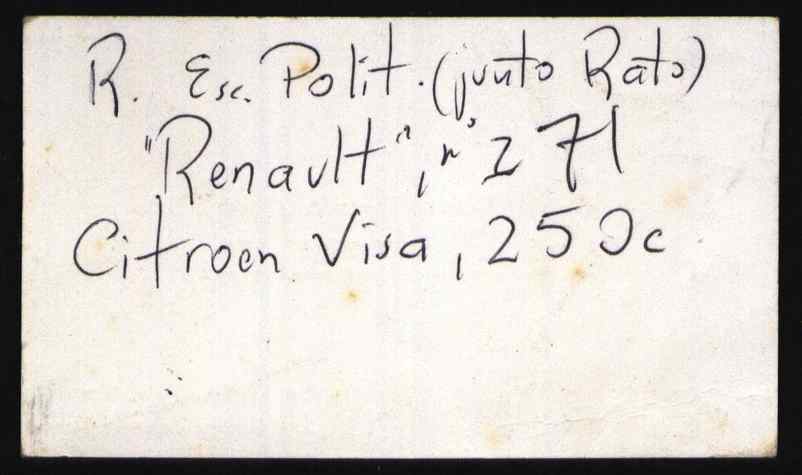 R. Esc. Polit. (junto Rato)
"Renault", nº 271
Citroen Visa, 250c